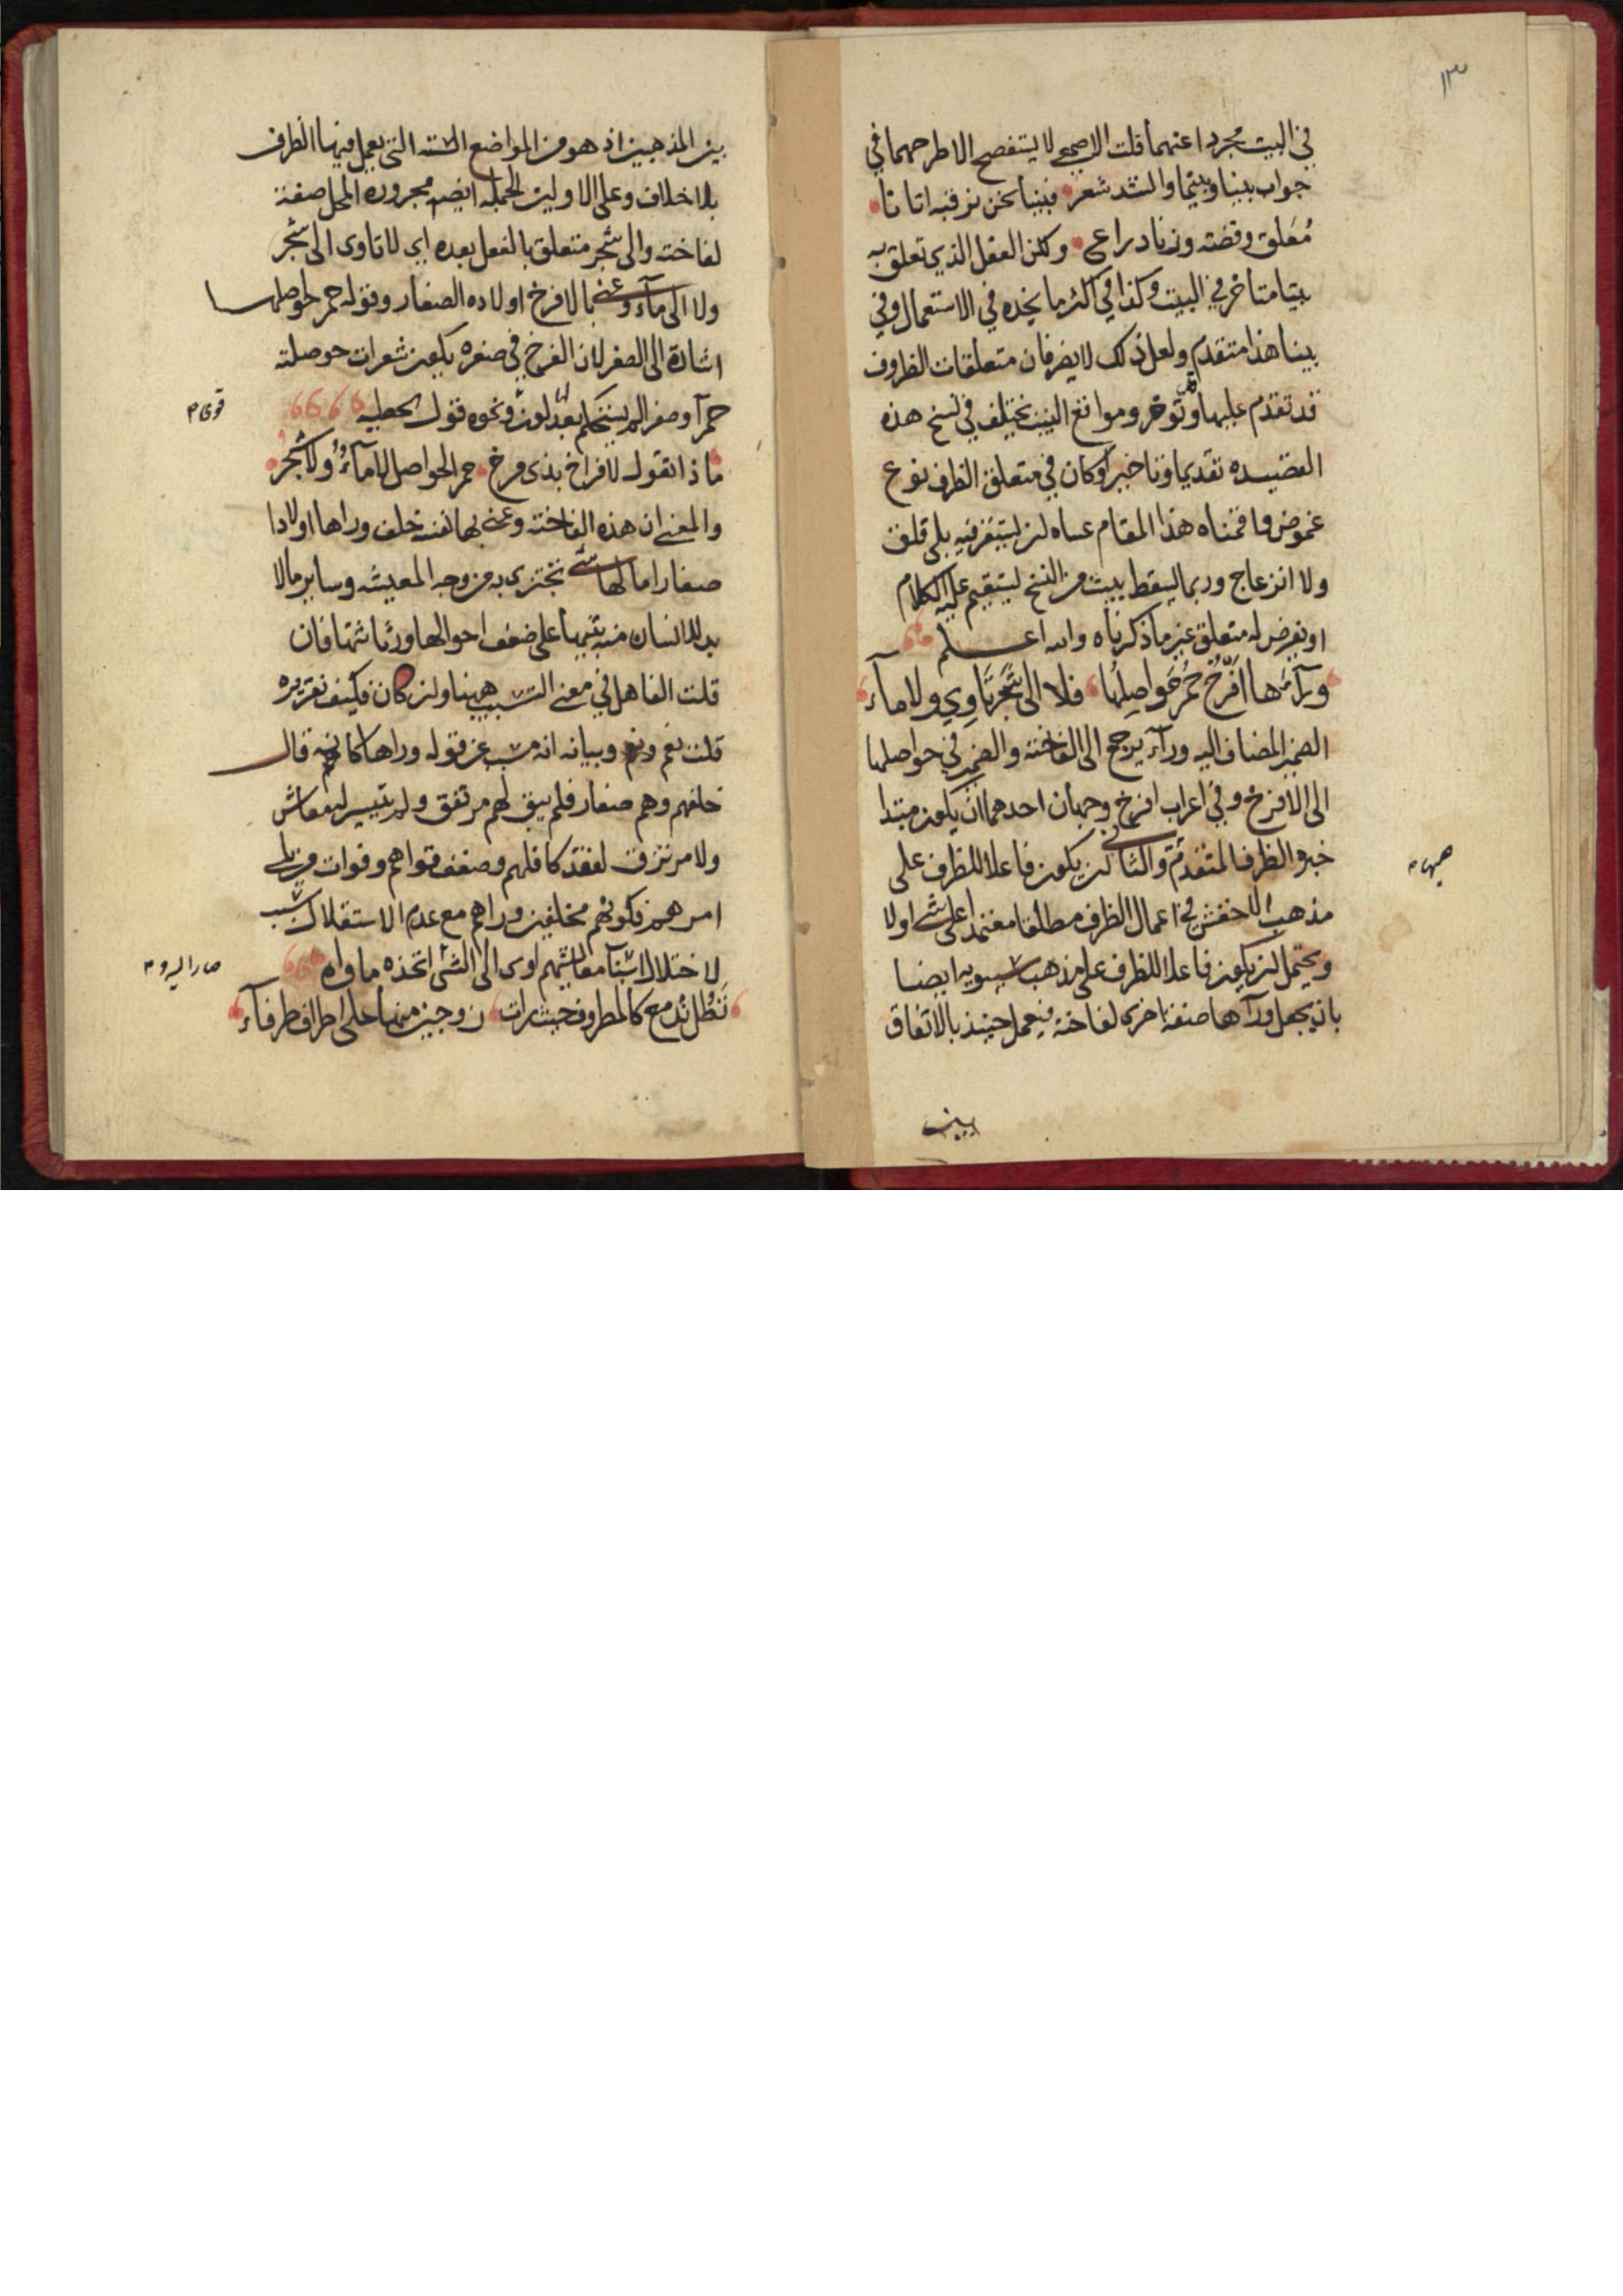 ١٣
في البيت مجردا عنهما قلت الاصمعي لا يستفصح الا طرحهما في
جواب بينا وبينما وانشد شعر فبينا نحن نرقبه اتانا
مُعلق وفضته وزناد راعي ولكن الفعل الذي تعلق به
بينا متاخر في البيت وكذا في اكثر ما نجده في الاستعمال وفي
بيتنا هذا متقدم ولعل ذلك لا يضر فان متعلقات الظروف
قد تقدم عليها وتؤخر ومواقع البيت تختلف في نسخ هذه
القصيده تقديما وتاخيرا وكان في متعلق الظرف نوع
غموض فاقمناه هذا المقام عساه لن يستقر فيه بلى قلق
ولا انزعاج وربما يسقط بيت من النسخ ليستقيم عليه الكلام
او نفرض له متعلق غير ما ذكرناه والله اعلم
ورآءها افرُخٌ حُمرٌ حَواصِلُها فلا الى شجر تاوِي ولا ماء
الضمير المضاف اليه ورآء يرجع الى الفاخته والضمير في حواصلها
الى الافرخ وفي اعراب افرخ وجهان احدهما ان يكون مبتدا
خبره الظرف المتقدم والثاني لن يكون فاعلا للظرف على
مذهب الاخفش في اعمال الظرف مطلقا معتمدا على شي اولا
ويحتمل لن يكون فاعلا للظرف على مذهب سيبويه ايضا
بان يجعل ورآءها صفة اخرى لفاخته فيعمل حينئذ بالاتفاق
بين
بين المذهبين اذ هو من المواضع الستة التي يعمل فيها الظرف
بلا خلاف وعلى الاولين الجملة ايضا مجروره المحل صفة
لفاخته والى شجر متعلق بالفعل بعده اي لا تاوى الى شجر
ولا الى مآء وعنى بالافرخ اولاده الصغار وقوله حمر حواصلها
اشارة الى الصغر لان الفرخ في صغره يكون شعرات حوصلته
حمرآ وصفرا لم يستحكم بعد لون ونحوه قول الحطيه
ماذا تقول لافراخ بذى مرخ حمر الحواصل لا مآءٌ ولا شجرُ
والمعنى ان هذه الفاخته وعنى بها نفسه خلف وراها اولادا
صغارا ما لها شي تجتزي به من وجه المعيشه وساير ما لا
بد للانسان منه تنبيها على ضعف احوالها ورثاثتها فان
قلت الفا هل في معنى التسبيب ههنا ولن كان فكيف تقريره
قلت نعم وبيانه انه مسبب عن قوله وراها كانه قال
خلفهم وهم صغار فلم يبق لهم مرتفق ولم يتيسر لهم معاش
ولا مرتزق لفقد كافلهم وضعف قواهم وفوات من يلي
امرهم فكونهم مخلفين وراهم مع عدم الاستقلال سبب
لاختلال اسباب معاشهم اوى الى الشى اتخذه ماواه
تظل تدمع كالمطروف حيث رات زوجين منها على اطراف طرفآء
ههنا م
قوى م
صار اليه وم